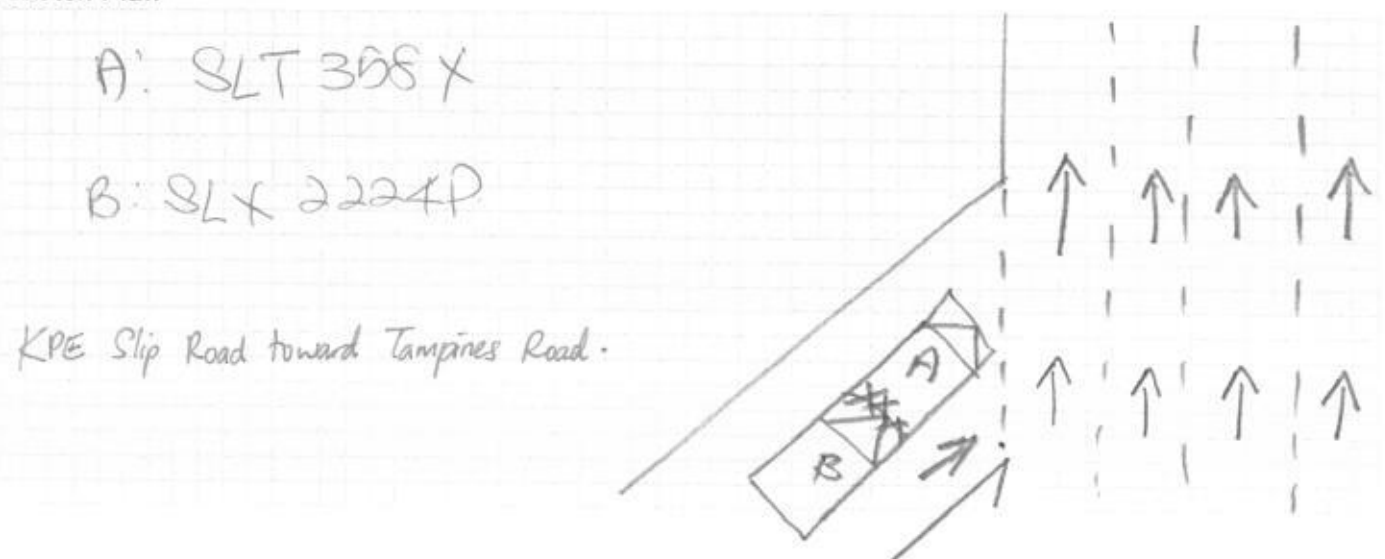 A: SLT 358X
B: SLX 2224P
KPE Slip Road toward Tampines Road.
A
B